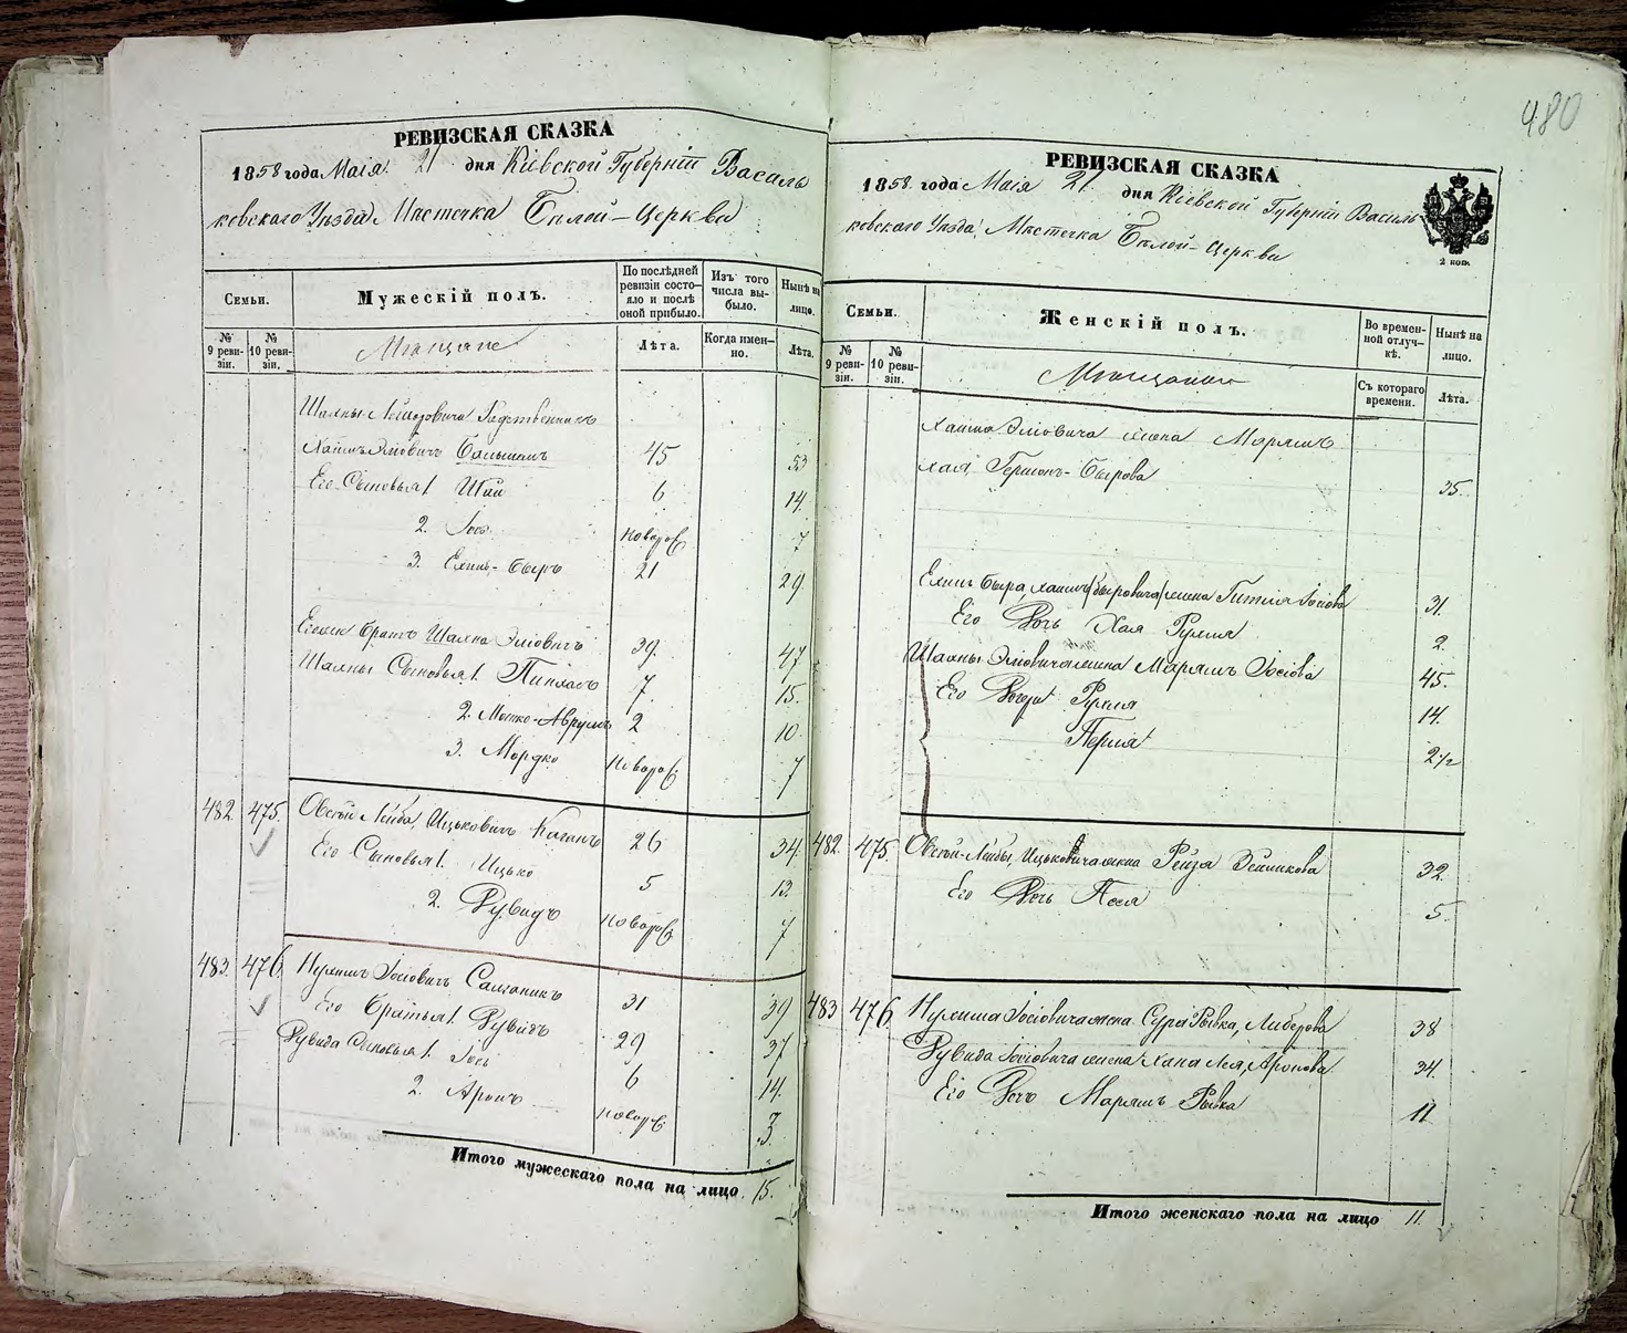 480
РЕВИЗСКАЯ СКАЗКА
1858 года Маія 21 дня Кіевской Губерніи Василь
ковскаго Уѣзда Мѣстечка Бѣлой-Церкви
Семьи.
Мужескій полъ.
По послѣдней ревизіи состояло и послѣ оной прибыло.
Изъ того числа выбыло.
Нынѣ на лицо.
№ 9 ревизіи.
№ 10 ревизіи.
Мѣщане
Лѣта.
Когда именно.
Лѣта.
Шахны Родственникъ
Хаимъ Эліовичъ 45 53
Его Сыновья 1. Шаи 6 14.
2. Іось новорож 7
3. Ехиль-Беръ 21 29.
Братъ Шахна Эліовичъ 39. 47.
Шахны Сыновья 1. Пинхасъ 7. 15.
2. Мошко-Аврумъ 2 10.
3. Мордко новорож. 7
482. 475. Овсѣй Лейба, Ицьковичъ Каганъ 26 34.
Его Сыновья 1. Ицько 5 13.
2. Рувидъ новорож 7
483. 476. Нухимъ Іосіовичъ Салганикъ 31 39
Его Братья 1. Рувидъ 29 37
Рувида Сыновья 1. Іось 6 14.
2. Аронъ новорож. 3.
Итого мужескаго пола на лицо 15.
РЕВИЗСКАЯ СКАЗКА
1858. года Маія 21. дня Кіевской Губерніи Василь
ковскаго Уѣзда, Мѣстечка Бѣлой-Церкви
2 коп.
Семьи.
Женскій полъ.
Во временной отлучкѣ.
Нынѣ на лицо.
№ 9 ревизіи.
№ 10 ревизіи.
Мѣщанки
Съ котораго времени.
Лѣта.
Хаима Эліовича жена Марьямъ
Хая Берова 35.
Ехиль Бера жена Гитля Іосіова 31.
Его Дочь Хая Рухля 2.
Шахны Эліовича жена Марьямъ Іосіова 45.
Его Дочери Рухля 14.
Перля 2½
482. 475. Овсѣй-Лейбы, Ицьковича жена Рейза 32.
Его Дочь Песя 5.
483 476 Нухима Іосіовича жена Сура Рывка, Либерова 38
Рувида Іосіовича жена Хана Лея, Аронова 34.
Его Дочь Марьямъ Рывка 11
Итого женскаго пола на лицо 11.